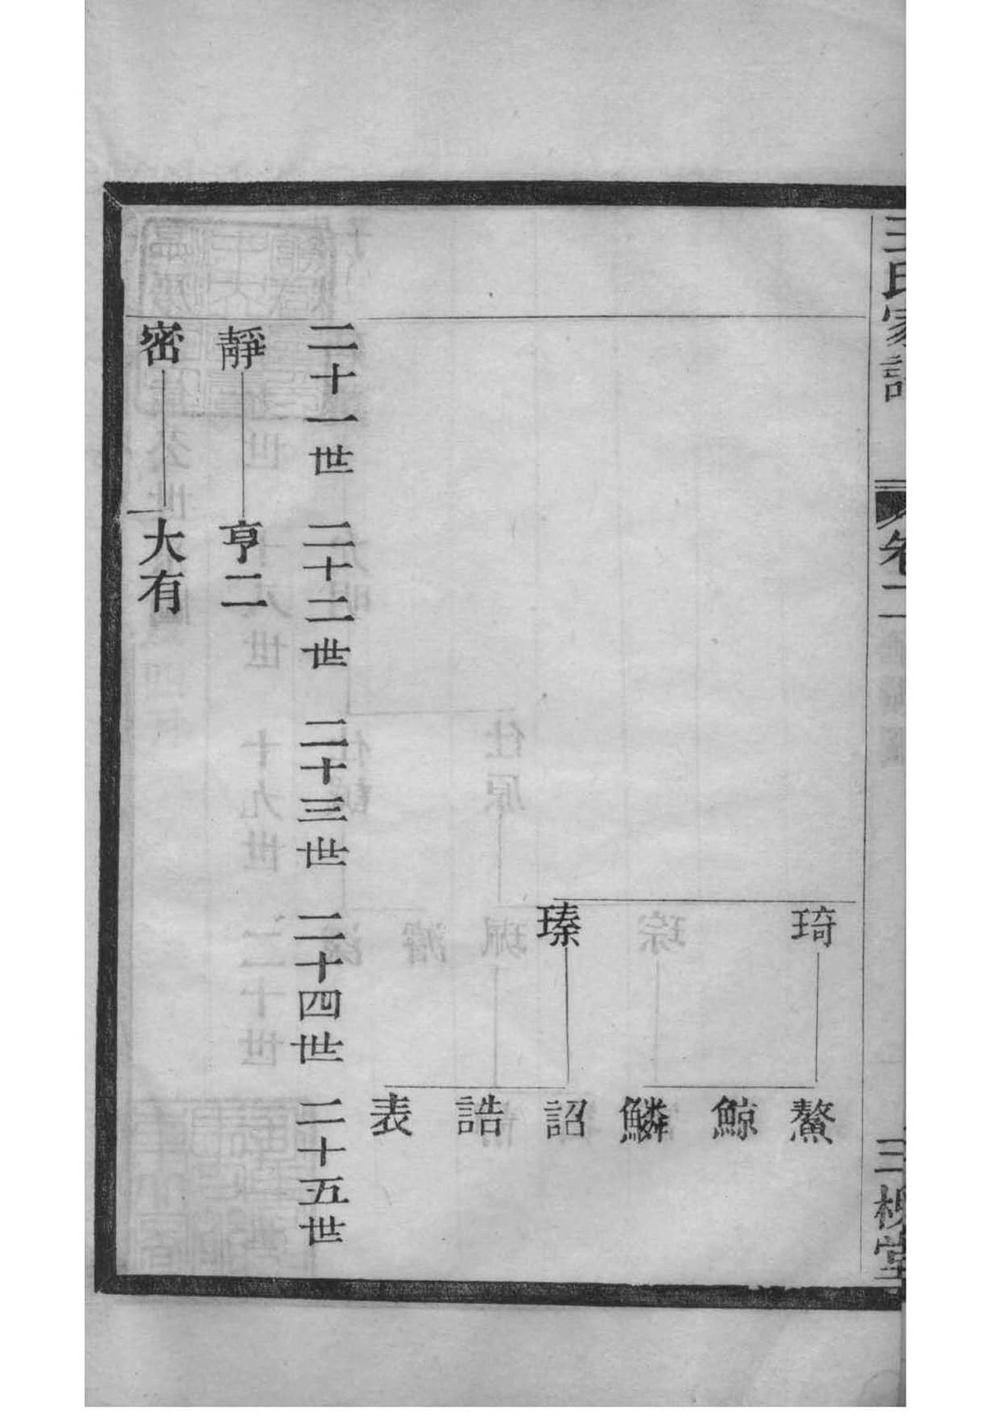 王氏家譜
卷二
三槐堂
琦
鰲
鯨
鱗
瑧
詔
誥
表
二十一世 二十二世 二十三世 二十四世 二十五世
靜 亨二
密 大有